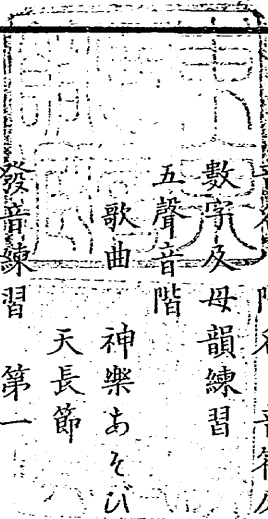 數字及母韻練習
五聲音階
歌曲　神樂あそび
天長節
發音練習　第一